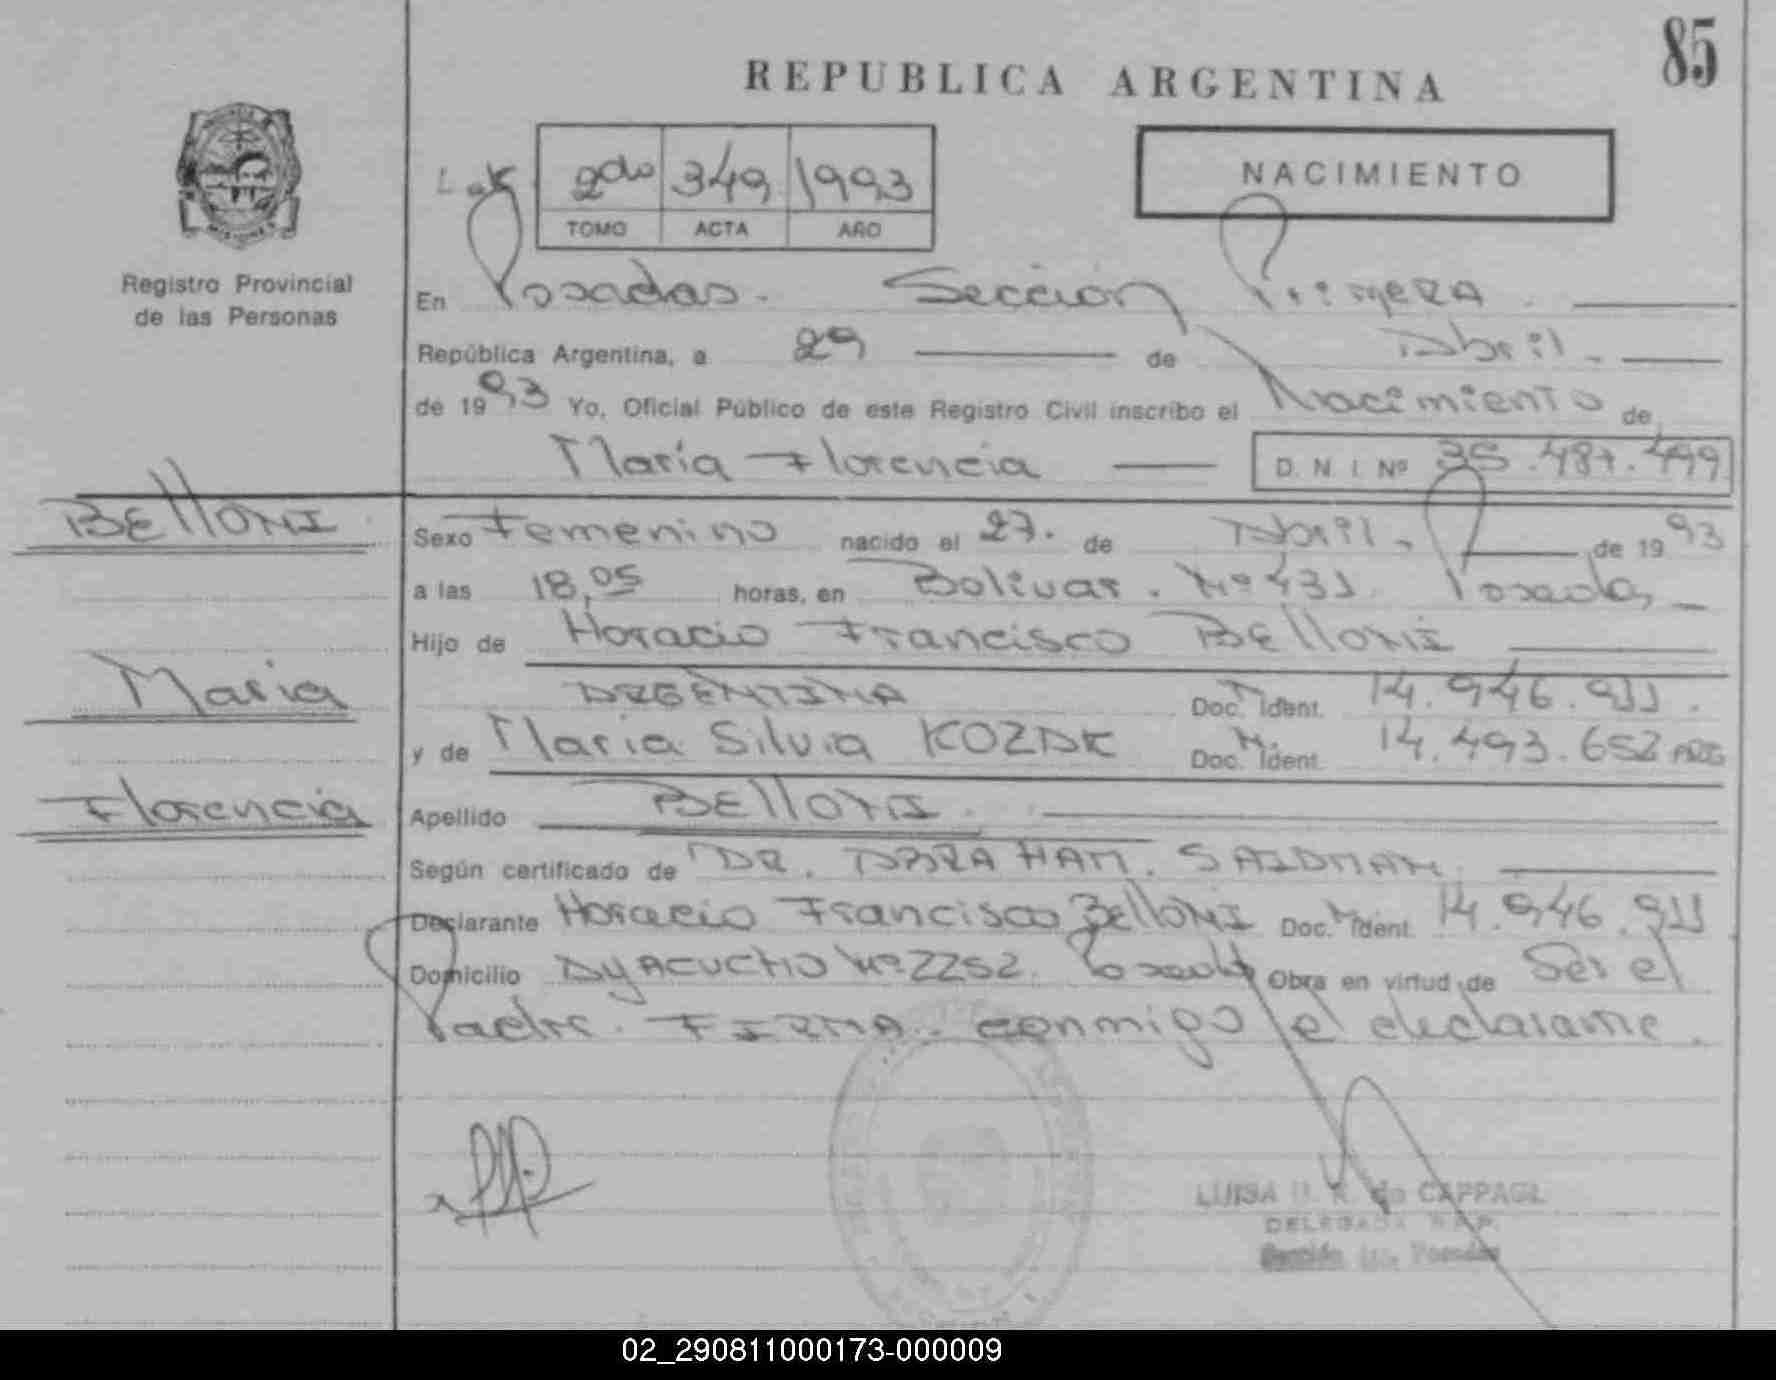 85
REPUBLICA ARGENTINA
NACIMIENTO
2do 349 1993
TOMO ACTA AÑO
Registro Provincial
de las Personas
En Posadas. Sección Primera.
República Argentina, a 29 de Abril.
de 1993 Yo, Oficial Público de este Registro Civil inscribo el Nacimiento de
María Florencia D. N. I. Nº 35.487.499
BELLONI
Sexo Femenino nacido el 27. de Abril. de 1993
a las 18,05 horas, en Bolivar. Nº 431. Posadas
Hijo de Horacio Francisco BELLONI
Maria
ARGENTINA Doc. Ident. 14.946.911.
y de Maria Silvia KOZAK Doc. Ident. 14.493.652 ARG
Florencia
Apellido BELLONI.
Según certificado de DR. ABRAHAM. SAIDMAN.
Declarante Horacio Francisco BELLONI Doc. Ident. 14.946.911
Domicilio AYACUCHO Nº 2252. Posadas Obra en virtud de Ser el
Padre. FIRMA. conmigo el declarante.
LUISA de CAPPAGL
DELEGADA R.P.P.
Sección 1a. Posadas
02_290811000173-000009